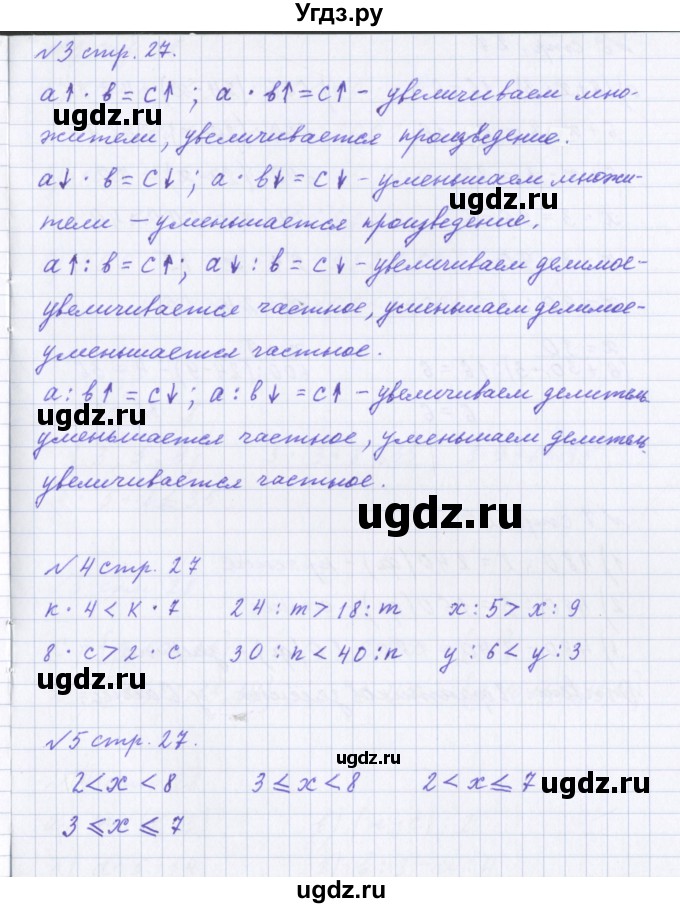 Угдз.ру
№3 стр. 27.
а↑ · в = с↑ ; а · в↑ = с↑ - увеличиваем мно-
ugdz.ru
жители, увеличивается произведение.
а↓ · в = с↓ ; а · в↓ = с↓ - уменьшаем множи-
ugdz.ru
тели — уменьшается произведение.
а↑ : в = с↑; а↓ : в = с↓ - увеличиваем делимое-
увеличивается частное, уменьшаем делимое-
уменьшается частное.
а : в↑ = с↓ ; а : в↓ = с↑ - увеличиваем делитель
ugdz.ru
уменьшается частное, уменьшаем делитель
увеличивается частное.
ugdz.ru
№4 стр. 27
к · 4 < к · 7 24 : m > 18 : m x : 5 > x : 9
ugdz.ru
8 · с > 2 · с 30 : n < 40 : n y : 6 < y : 3
ugdz.ru
№5 стр. 27.
ugdz.ru
2 < x < 8 3 ≤ x < 8 2 < x ≤ 7
ugdz.ru
3 ≤ x ≤ 7
ugdz.ru